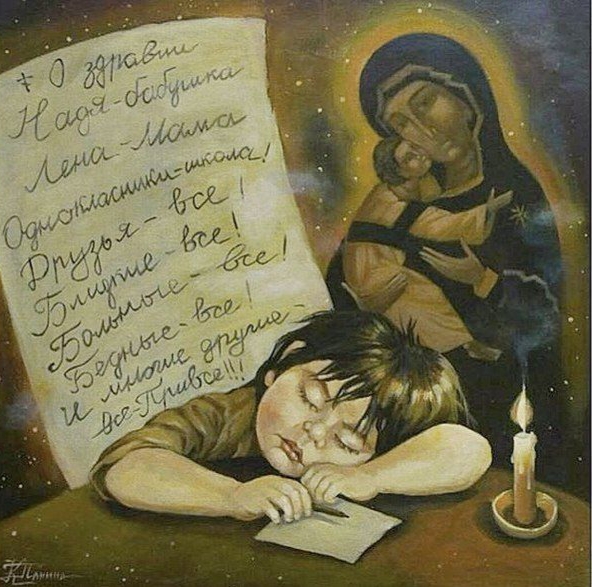 + О здравии
Надя-бабушка
Лена-Мама
Однокласники-школа!
Друзья-все!
Близкие-все!
Больные-все!
Бедные-все!
И многие другие-
все-Привсе!!!